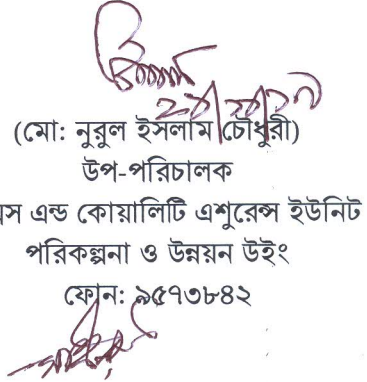 (মো: নুরুল ইসলাম চৌধুরী)
উপ-পরিচালক
এন্ড কোয়ালিটি এশুরেন্স ইউনিট
পরিকল্পনা ও উন্নয়ন উইং
ফোন: ৯৫৭৩৮৪২